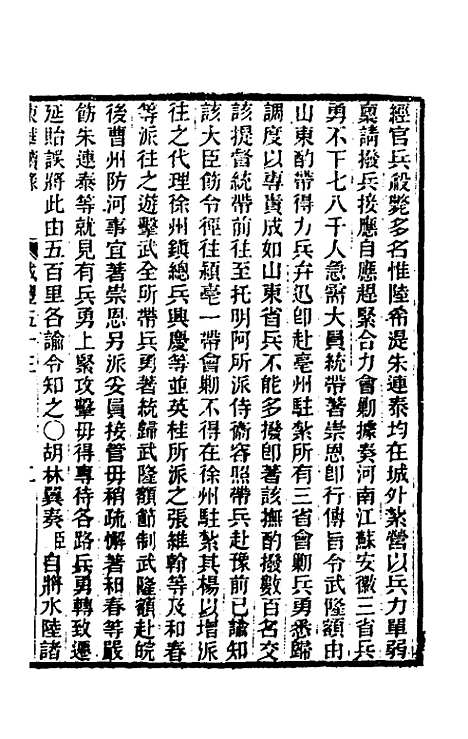 經官兵殺斃多名惟陸希湜朱連泰均在城外紮營以兵力單弱
稟請撥兵接應自應趕緊合力會勦據奏河南江蘇安徽三省兵
勇不下七八千人急需大員統帶著崇恩卽行傳旨令武隆額由
山東酌帶得力兵弁迅卽赴亳州駐紮所有三省會勦兵勇悉歸
調度以專責成如山東省兵不能多撥卽著該撫酌撥數百名交
該提督統帶前往至托明阿所派侍衞容照帶兵赴豫前已諭知
該大臣飭令徑往潁亳一帶會勦不得在徐州駐紮其楊以增派
往之代理徐州鎭總兵興慶等並英桂所派之張維翰等及和春
等派往之遊擊武全所帶兵勇著統歸武隆額節制武隆額赴皖
後曹州防河事宜著崇恩另派妥員接管毋稍疏懈著和春等嚴
飭朱連泰等就見有兵勇上緊攻擊毋得專待各路兵勇轉致遷
延貽誤將此由五百里各諭令知之〇胡林翼奏臣自將水陸諸
東華續錄 咸豐五十三